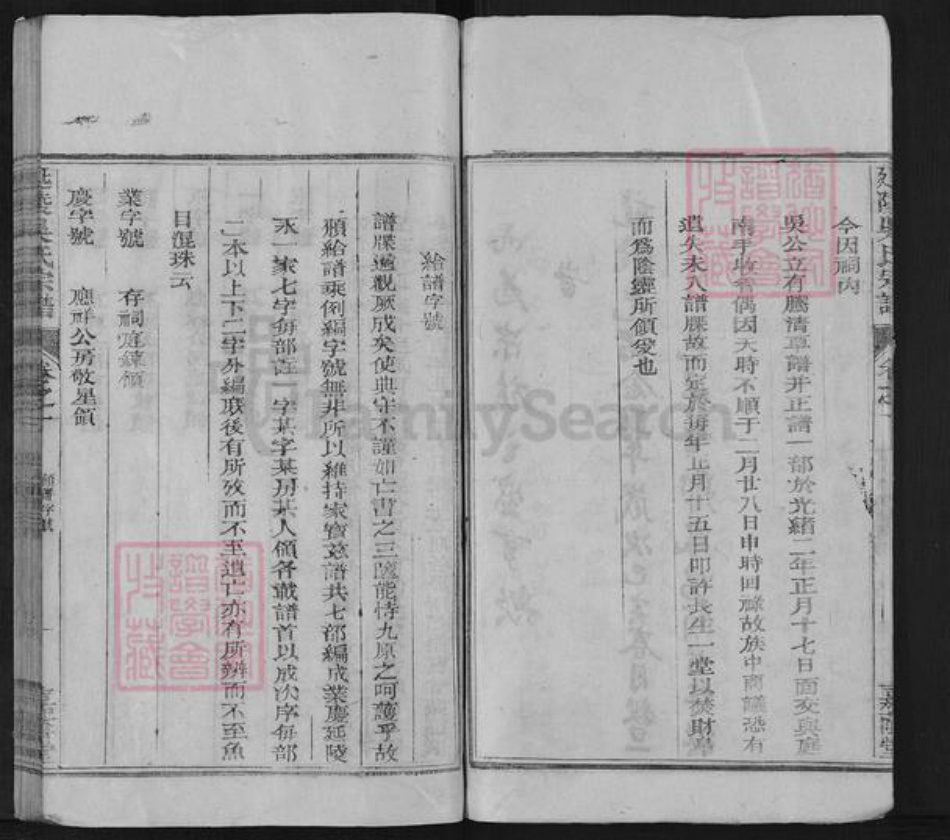 今因祠內
吳公立有騰清草譜并正譜一部於光緒二年正月十七日面交與庭
南手收希偶因天時不順于二月廿八日申時回祿故族中商議恐有
遺失未入譜牒故而定於每年正月十五日叩許長生一堂以焚財帛
而為陰靈所領受也
給譜字號
譜牒過視厥成矣使典守不謹如亡書之三篋能恃九原之呵護乎故
頒給譜乘例編字號無非所以維持家寶茲譜共七部編成業慶延陵
永一家七字每部註一字某字某房某人領各載譜首以成次序每部
二本以上下二字外編取後有所攷而不至遺亡亦有所辨而不至魚
目混珠云
業字號 存祠庭鍊領
慶字號 應祥公房敬星領
延陵吳氏宗譜 卷之一
延陵吳氏宗譜 卷之一
譜學會
收藏
FamilySearch